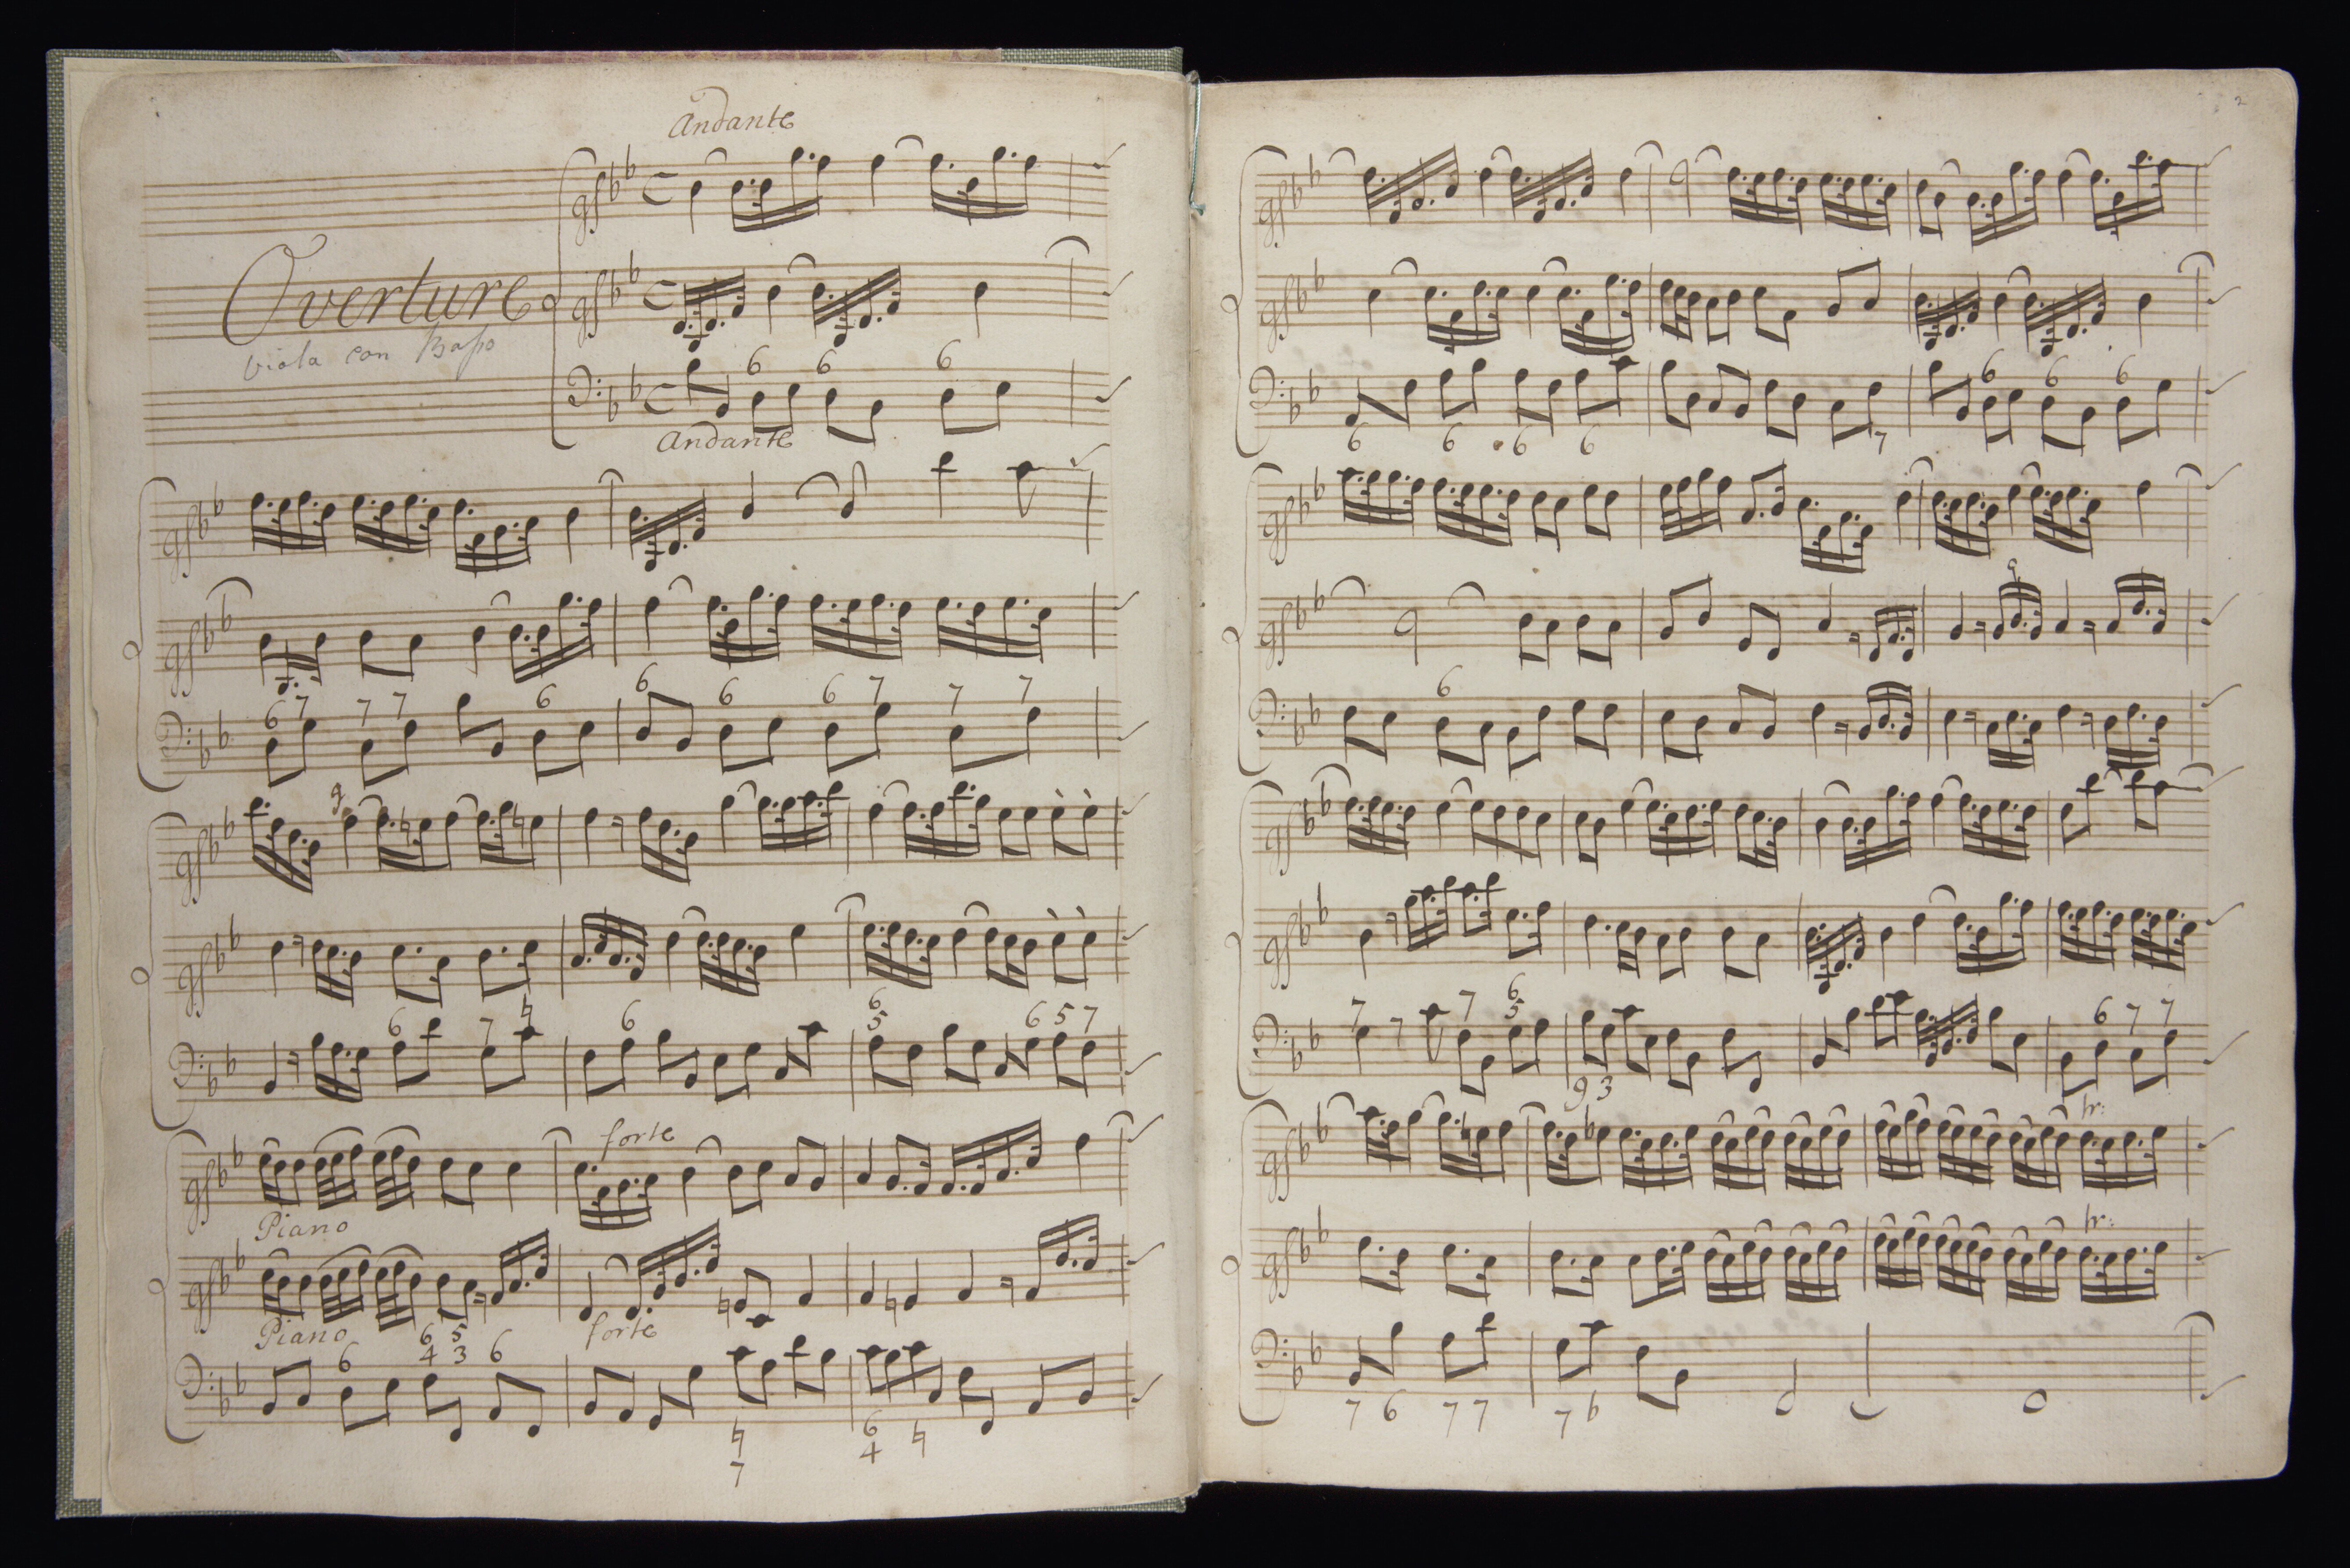 Andante
Overture
viola con Basso
6 6 6
Andante
6 7 7 7 6 6 6 6 7 7 7
6 7 ♮ 6 6 6 5 7
5
forte
Piano
Piano forte
6 6 5 6
4 3
♮ 6 ♮
7 4
2
6 6 6
6 6 6 6 7
6
7 7 6
5
6 7 7
9 3
tr:
tr:
7 6 7 7 7 6